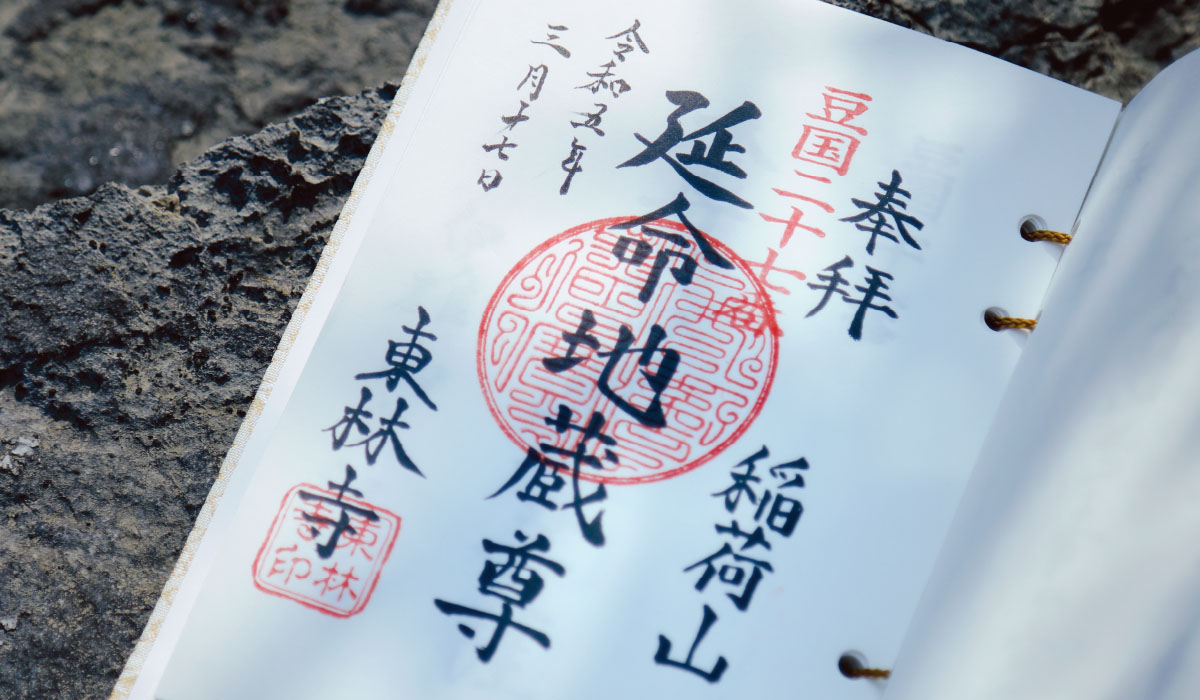 奉拝
豆国二十七番
稲荷山
延命地蔵尊
令和五年
三月十七日
東林寺
東林寺印